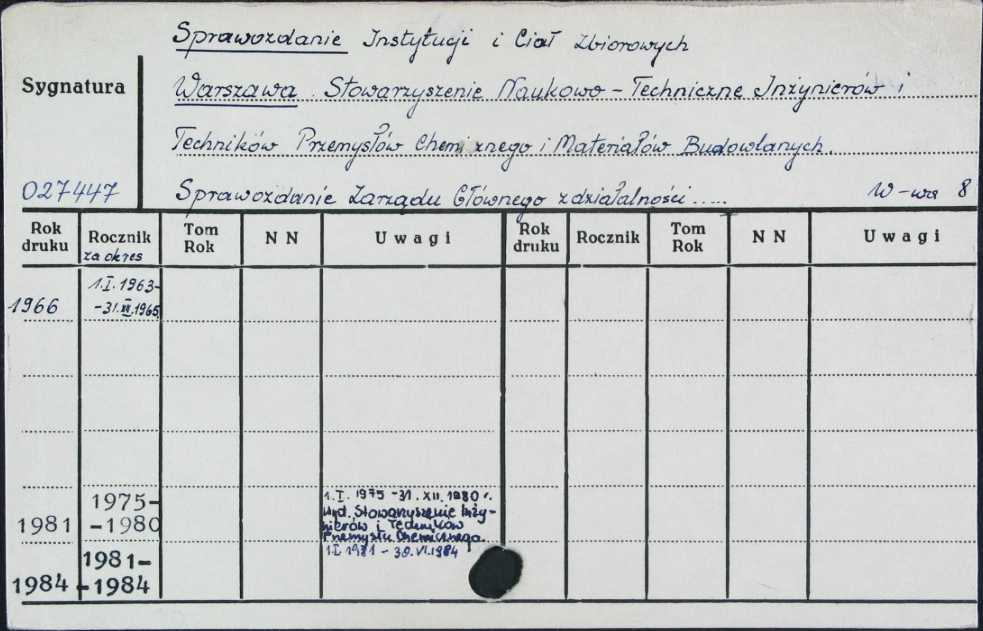 Sprawozdanie Instytucji i Ciał Zbiorowych
Sygnatura
Warszawa. Stowarzyszenie Naukowo-Techniczne Inżynierów i
Techników Przemysłów Chemicznego i Materiałów Budowlanych.
027447
Sprawozdanie Zarządu Głównego z działalności..... W-wa 8
Rok druku Rocznik za okres Tom Rok N N Uwagi Rok druku Rocznik Tom Rok N N Uwagi
1.I.1963-
1966 -31.XII.1965
1975- 1.I.1975 -31.XII.1980 r.
Wyd. Stowarzyszenie Inży-
1981 -1980 nierów i Techników
Przemysłu Chemicznego.
1981- 1.I 1981 - 30.VI.1984
1984 -1984